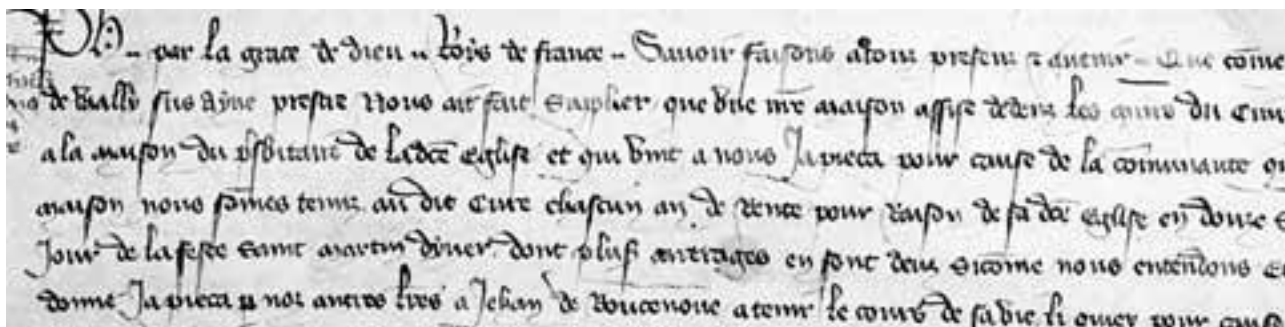 Ph. par la grace de dieu .. Roys de france .. Savoir faisons a touz presenz 7 avenir .. Que come
de vailly filz dyne prestre Nous ait fait supplier que une nre maison assise dedenz les murs du Cim
a la maison du psbitaire de ladce Eglise et qui vint a nous Ja pieca pour cause de la comunaute
maison nous somes tenuz au dit Cure chascun an de Rente pour Raison de sa dce Eglise en douze
Jour de la feste saint martin dyver dont plus arrerages en sont deuz Sicome nous entendons
donne Ja pieca p noz autres lres a Jehan de a tenir le cours de sa vie li ouier pour caus